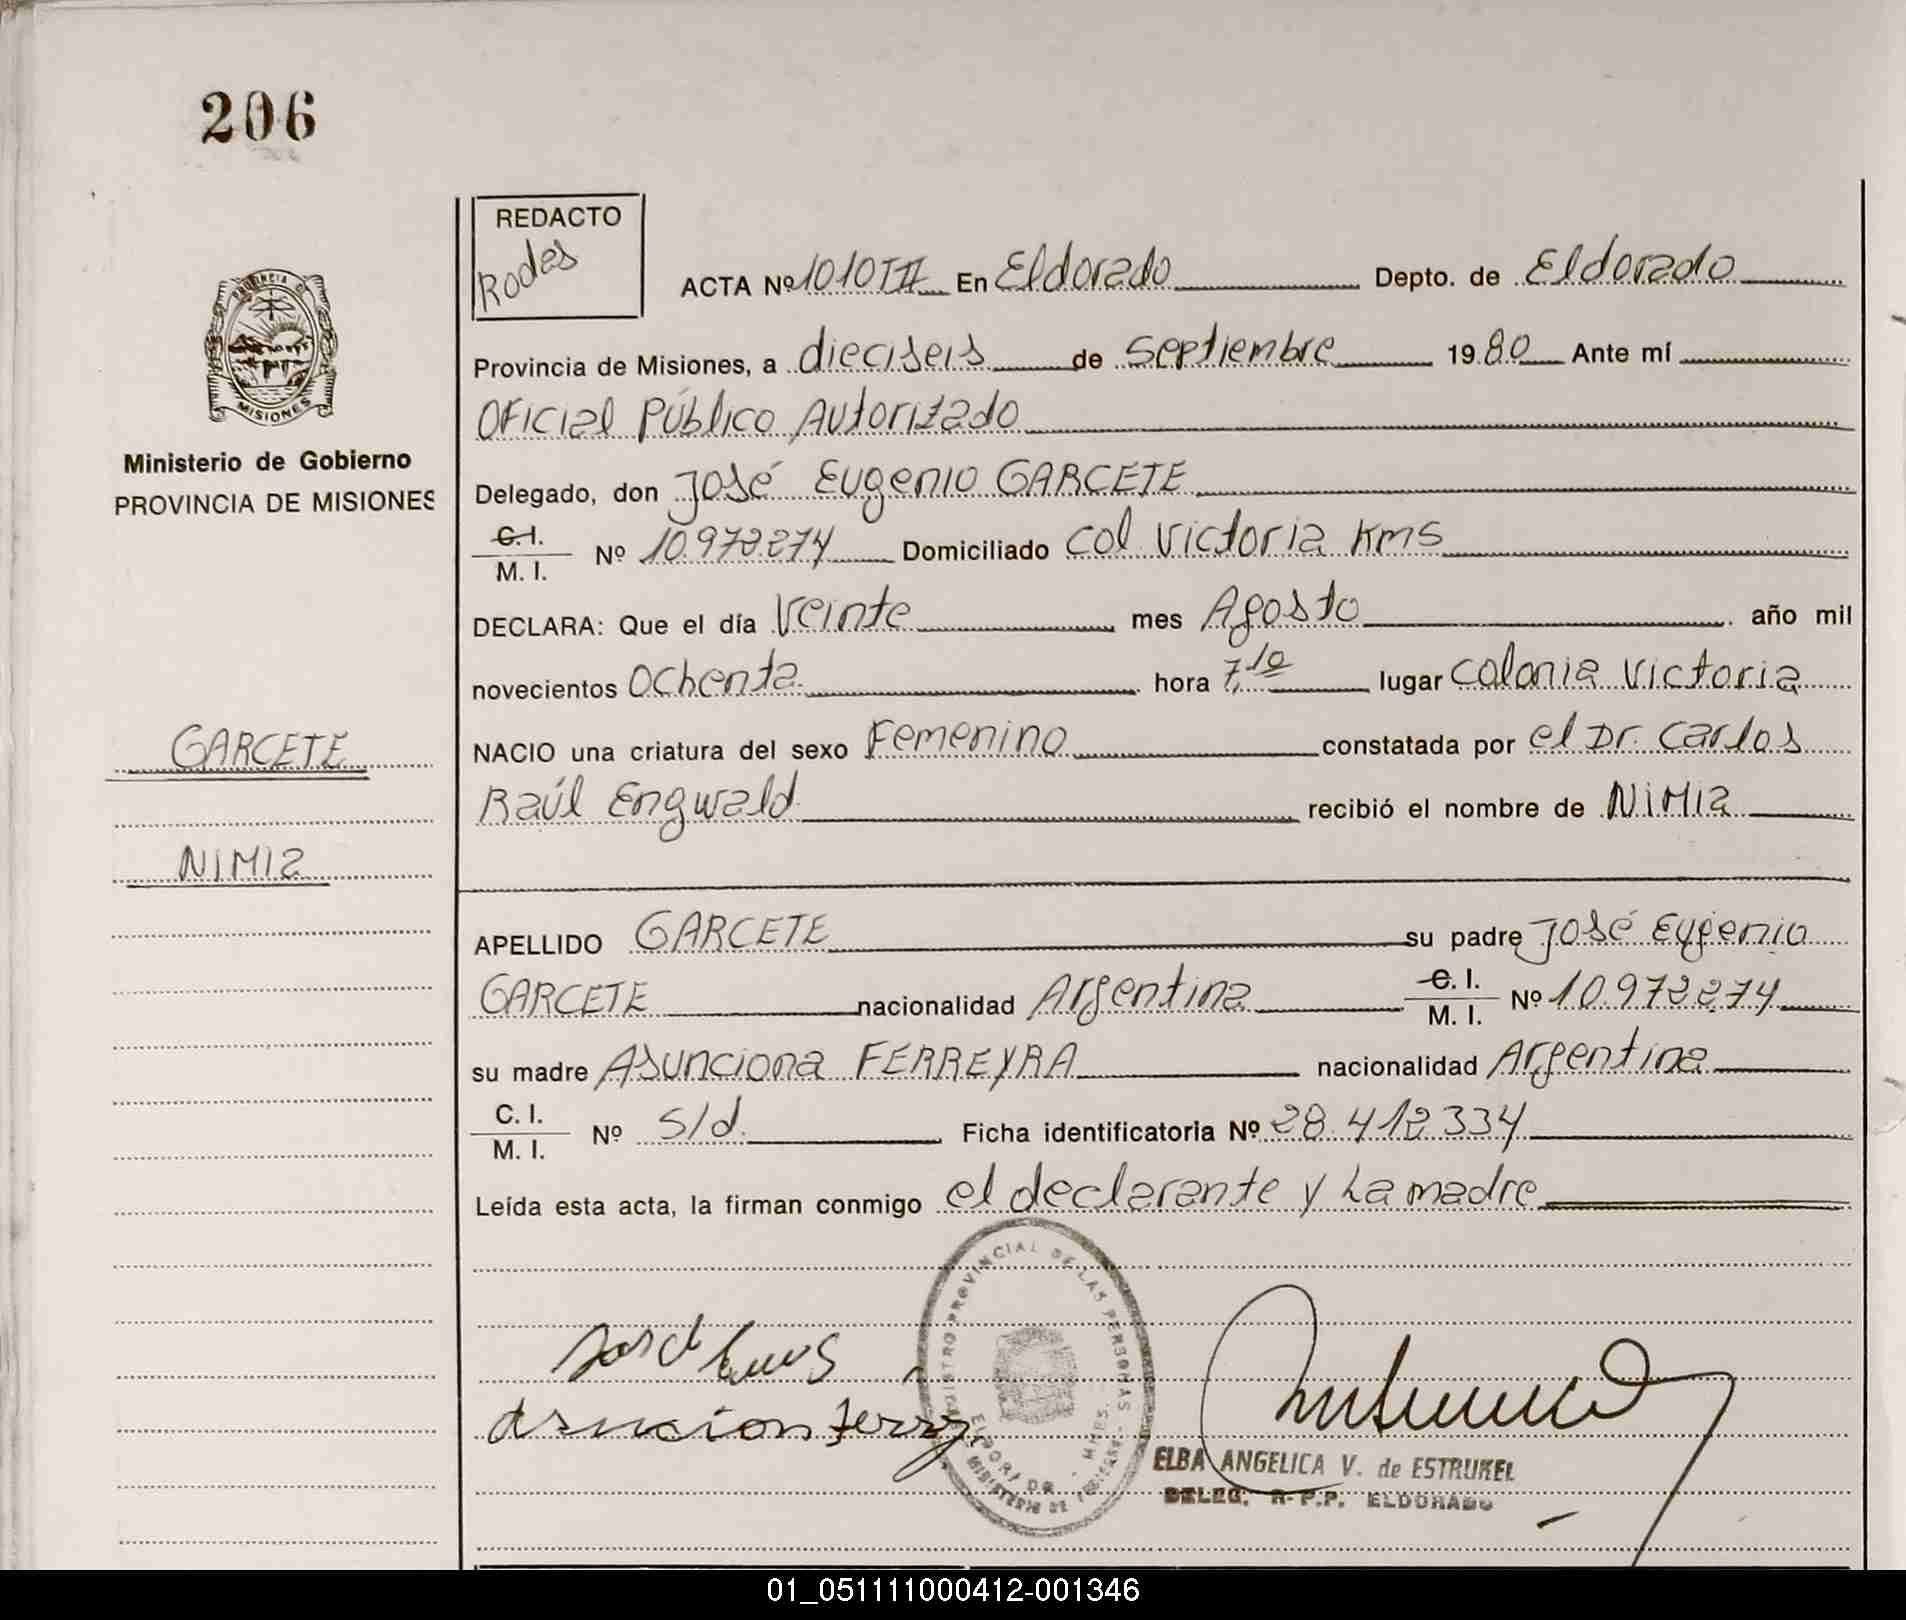 206
REDACTO
Rodas
ACTA Nº 1010 III En Eldorado Depto. de Eldorado
Provincia de Misiones, a dieciseis de Septiembre 1980 Ante mí
Oficial Público Autorizado
Delegado, don José Eugenio GARCETE
C.I. / M. I. Nº 10.973.274 Domiciliado Col Victoria Km5
DECLARA: Que el día Veinte mes Agosto año mil
novecientos Ochenta hora 7,10 lugar Colonia Victoria
NACIO una criatura del sexo Femenino constatada por el Dr. Carlos
Raúl Engwald recibió el nombre de NiMia
APELLIDO GARCETE su padre José Eugenio
GARCETE nacionalidad Argentina C. I. / M. I. Nº 10.973.274
su madre Asunciona FERREYRA nacionalidad Argentina
C. I. / M. I. Nº s/d Ficha identificatoria Nº 28.412.334
Leída esta acta, la firman conmigo el declarante y La madre
PROVINCIA DE
MISIONES
Ministerio de Gobierno
PROVINCIA DE MISIONES
GARCETE
NIMIa
REGISTRO PROVINCIAL DE LAS PERSONAS
ELDORADO - MNES.
MINISTERIO DE GOBIERNO
ELBA ANGELICA V. de ESTRUKEL
DELEG. R.P.P. ELDORADO
01_051111000412-001346